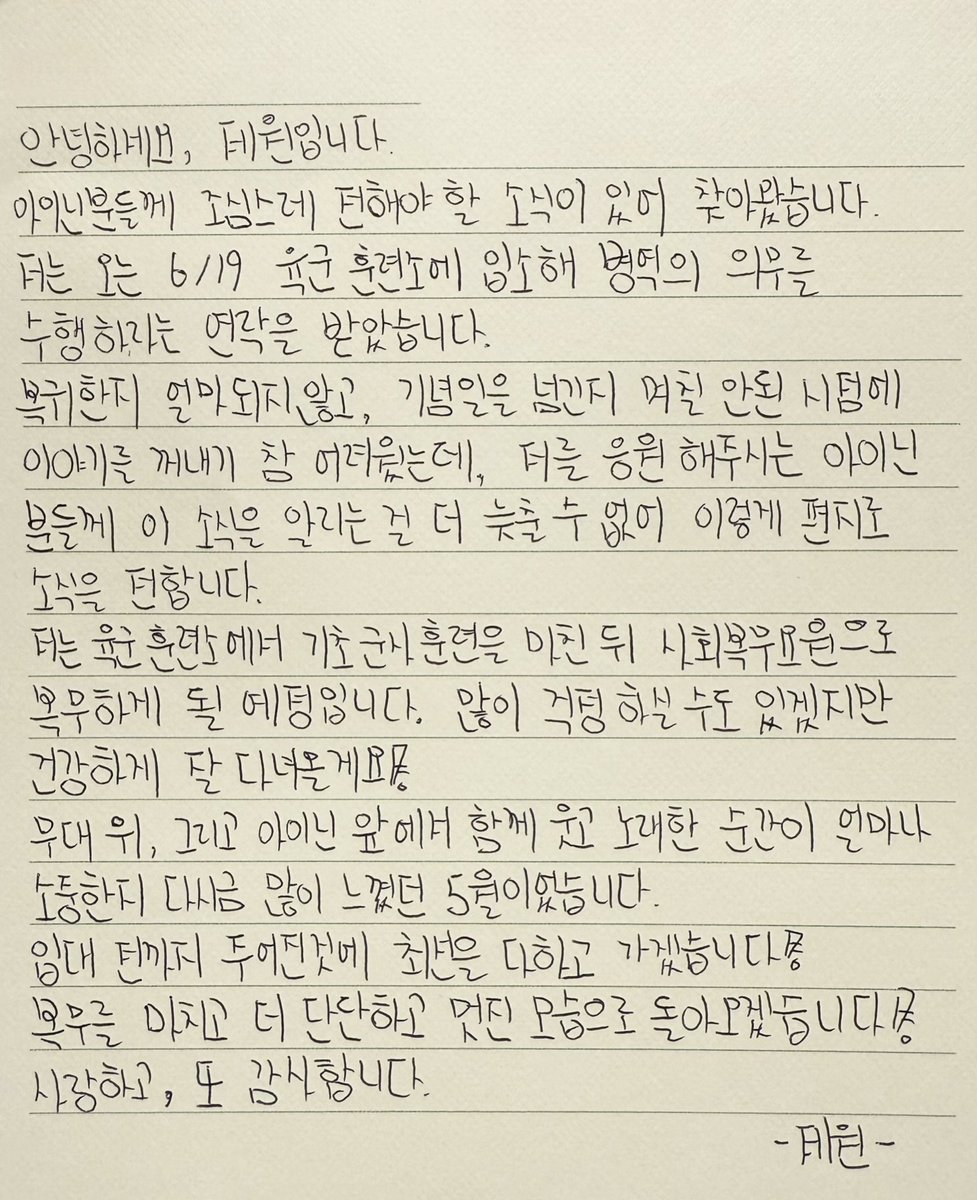 안녕하세요, 제원입니다.
아이닌분들께 조심스레 전해야 할 소식이 있어 찾아왔습니다.
저는 오는 6/19 육군 훈련소에 입소해 병역의 의무를
수행하라는 연락을 받았습니다.
복귀한지 얼마되지않고, 기념일을 넘긴지 며칠 안된 시점에
이야기를 꺼내기 참 어려웠는데, 저를 응원 해주시는 아이닌
분들께 이 소식을 알리는 걸 더 늦출 수 없어 이렇게 편지로
소식을 전합니다.
저는 육군 훈련소에서 기초군사훈련을 마친 뒤 사회복무요원으로
복무하게 될 예정입니다. 많이 걱정 하실 수도 있겠지만
건강하게 잘 다녀올게요!
무대 위, 그리고 아이닌 앞에서 함께 웃고 노래한 순간이 얼마나
소중한지 다시금 많이 느꼈던 5월이었습니다.
입대 전까지 주어진것에 최선을 다하고 가겠습니다!
복무를 마치고 더 단단하고 멋진 모습으로 돌아오겠습니다!
사랑하고, 또 감사합니다.
-제원-